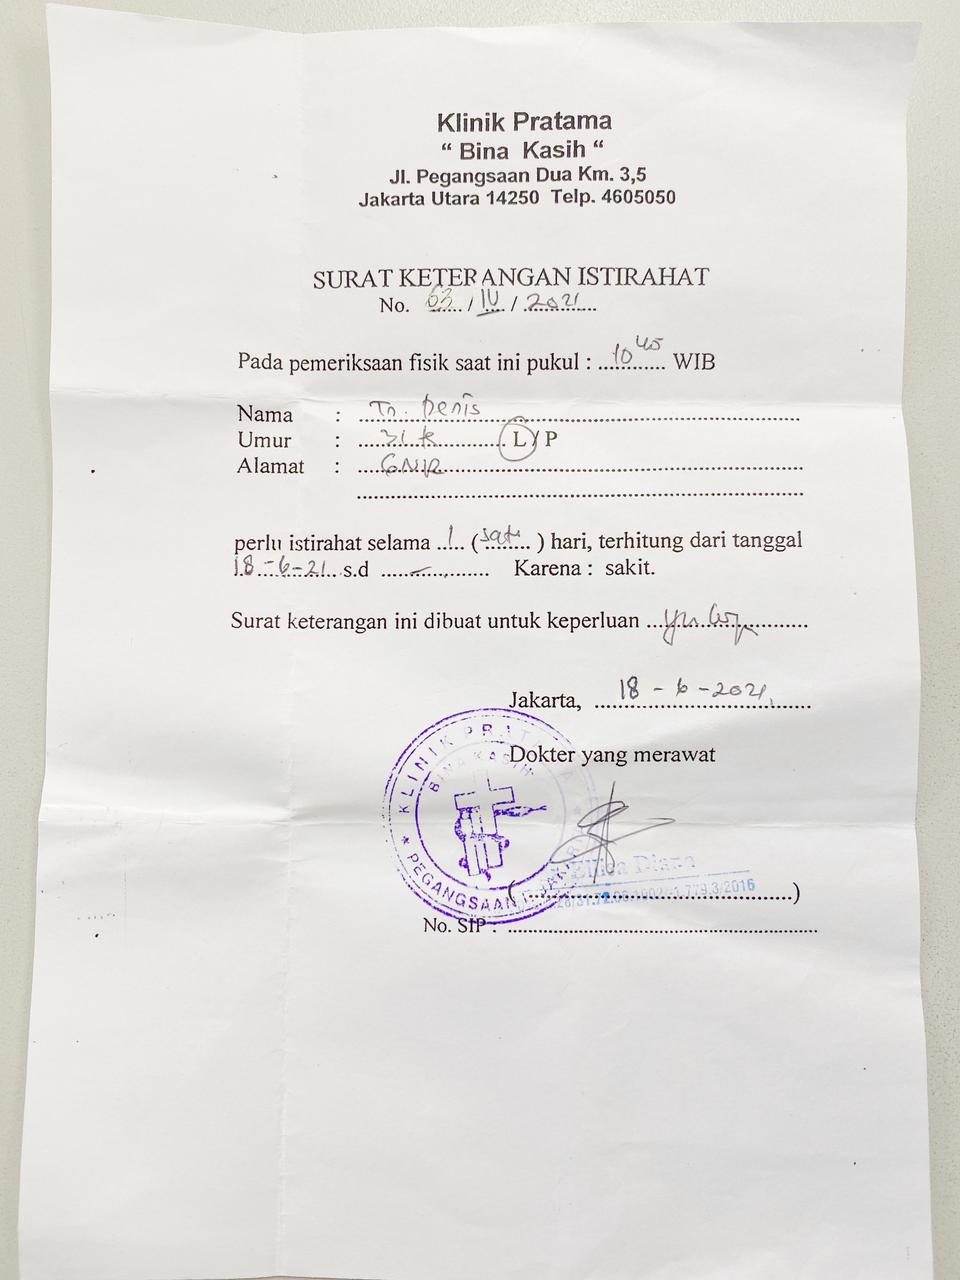 Klinik Pratama
“ Bina Kasih “
Jl. Pegangsaan Dua Km. 3,5
Jakarta Utara 14250 Telp. 4605050
SURAT KETERANGAN ISTIRAHAT
No. 63 / IV / 2021
Pada pemeriksaan fisik saat ini pukul : 10 45 WIB
Nama : Tn. Denis
Umur : L / P
Alamat :
perlu istirahat selama 1 (satu) hari, terhitung dari tanggal
18-6-21 s.d - Karena : sakit.
Surat keterangan ini dibuat untuk keperluan
Jakarta, 18 - 6 - 2021
Dokter yang merawat
KLINIK PRATAMA
BINA KASIH
PEGANGSAAN
Diana
No. SIP :